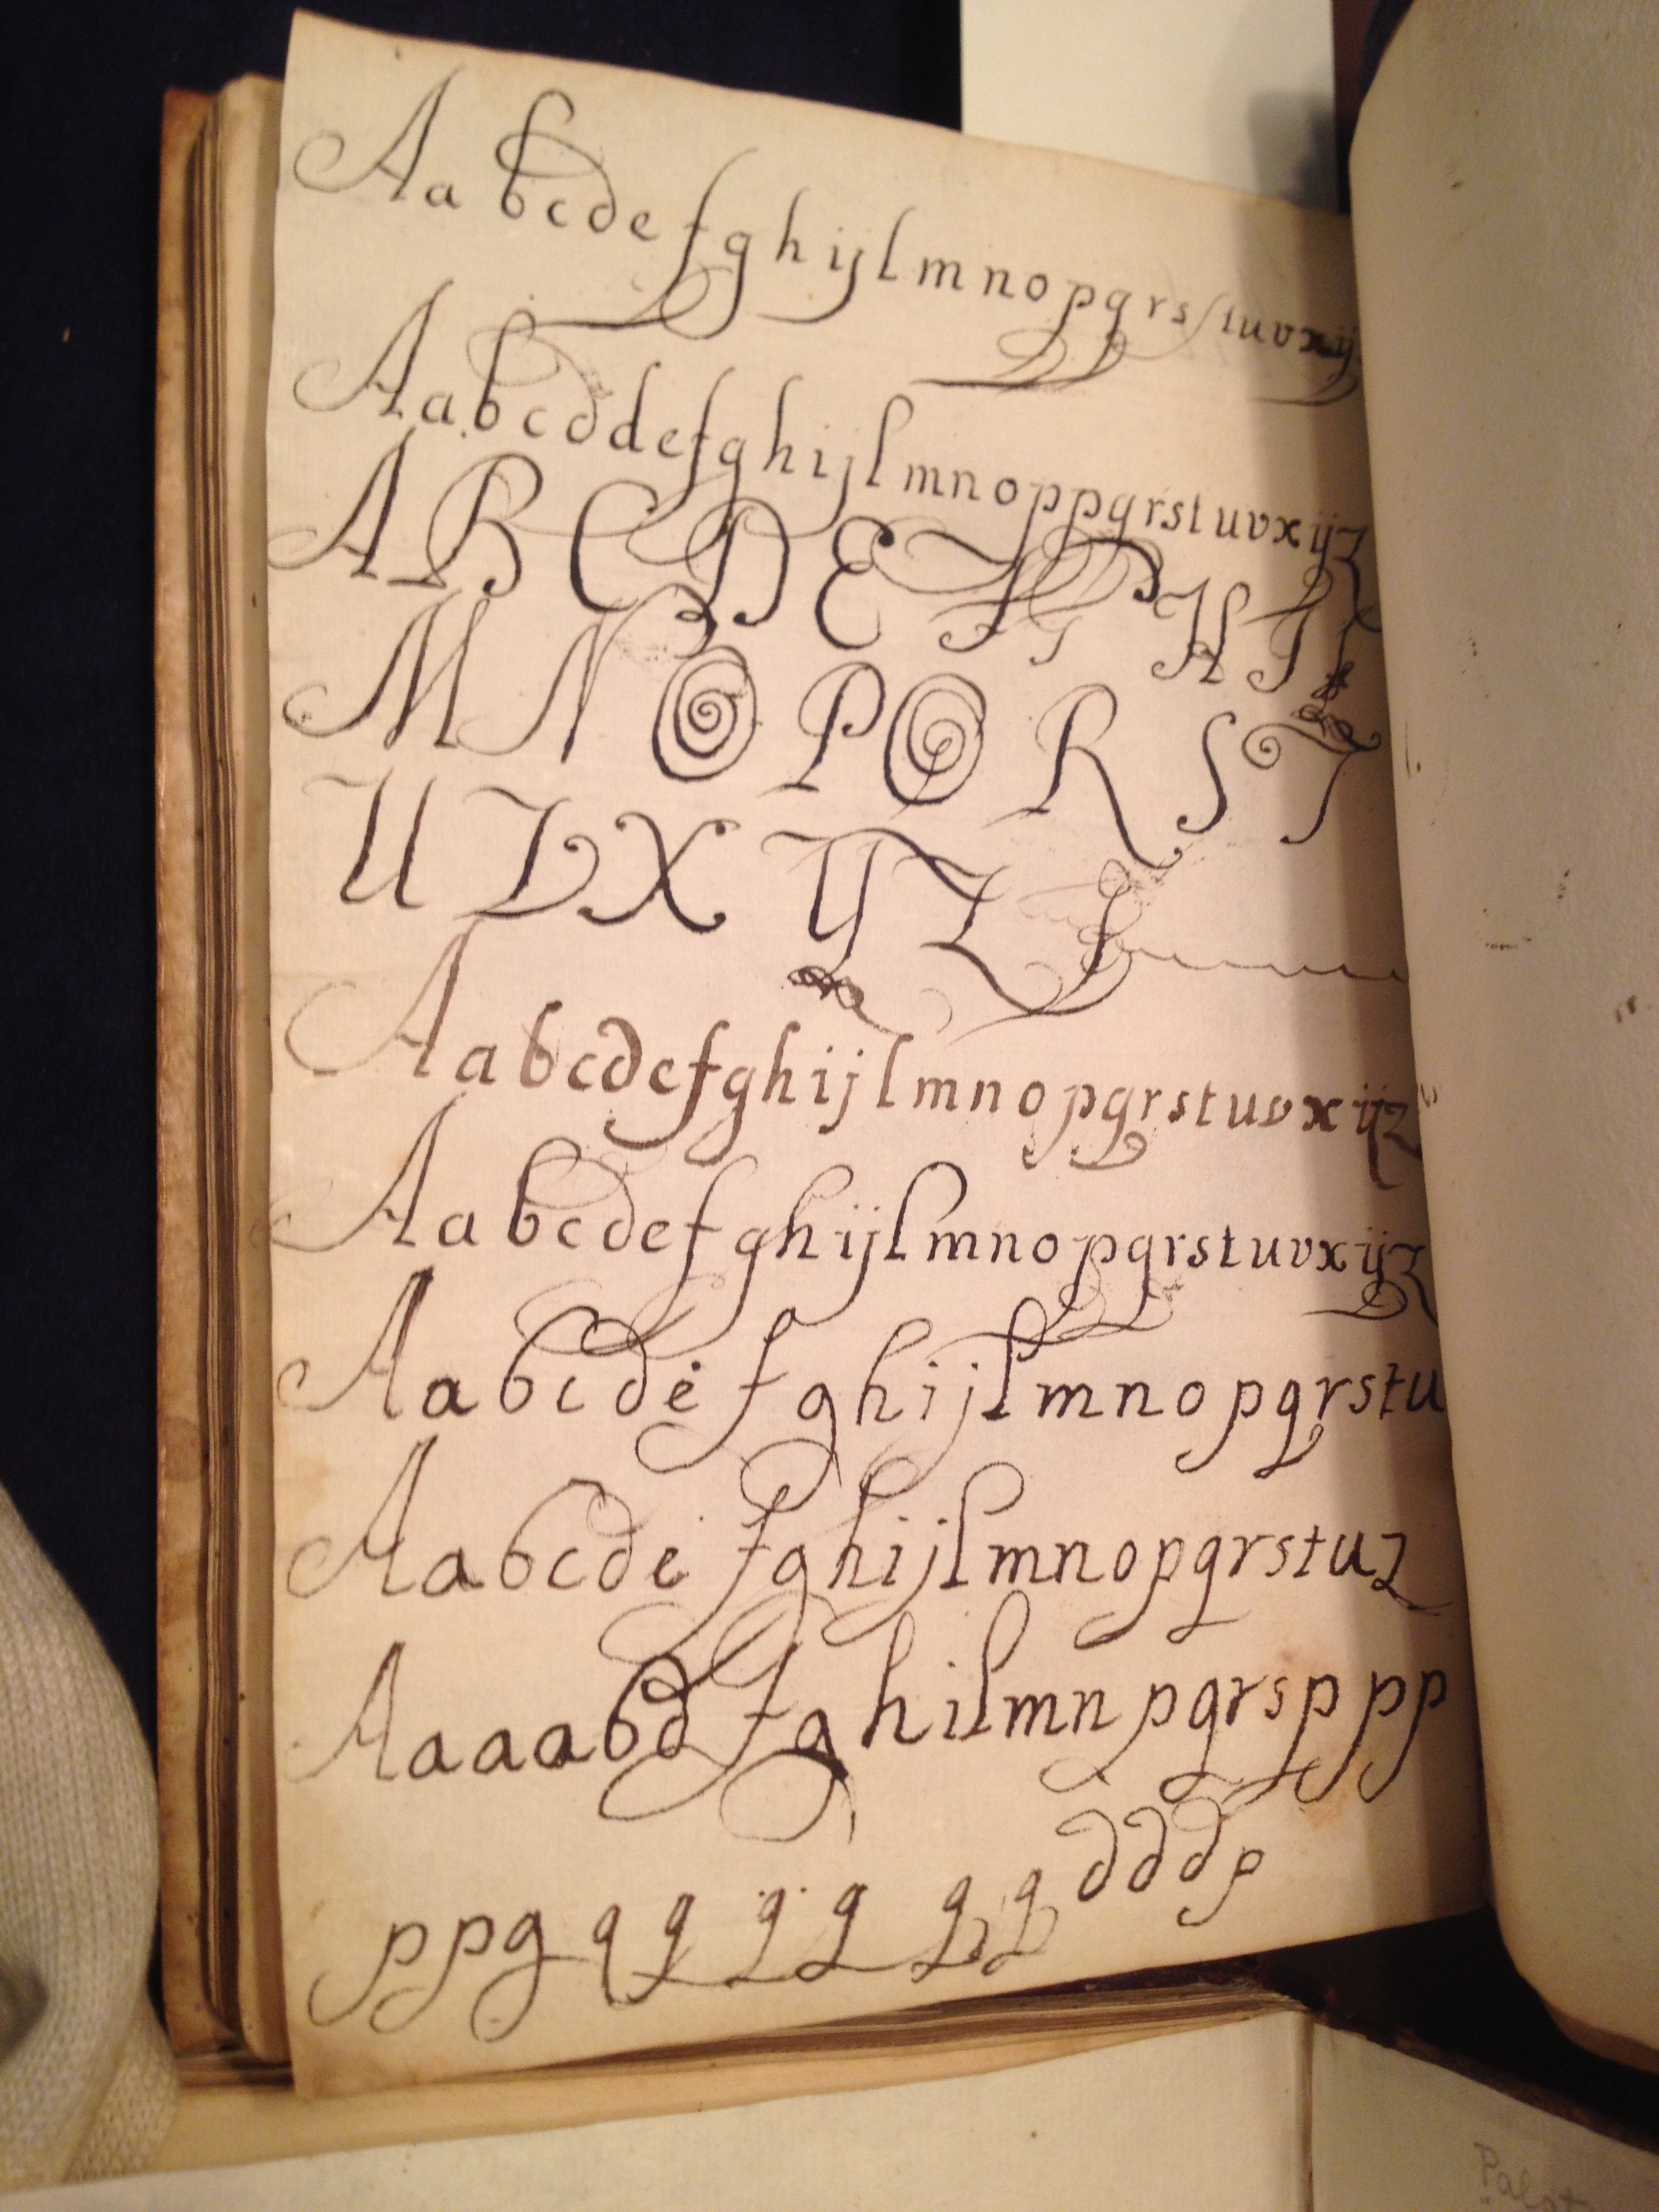 A a b c d e f g h i j l m n o p q r s ſ t u v x ij
A a b c d d e f g h i j l m n o p p q r s t u v x ij z
A B C D E F G H I L
M N O P Q R S T
U V X Y Z
A a b c d e f g h i j l m n o p q r s t u v x ij z
A a b c d e f g h i j l m n o p q r s t u v x ij z
A a b c d e f g h i j l m n o p q r s t u
A a b c d e f g h i j l m n o p q r s t u z
A a a a b d f g h i l m n p q r s p p p
p p g q q q q q q d d d p